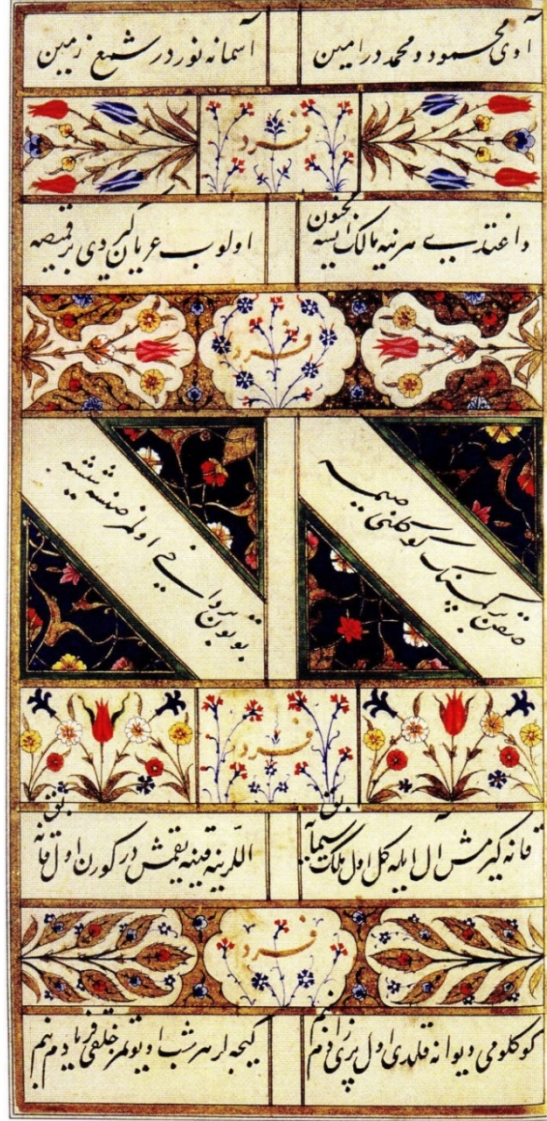 آدی محمود و محمد در امین آسمانه نور در شمع زمین
فرد
داغتدی هر نیه مالک ایسه مجنون اولوب عریان کیردی بر قمیصه
فرد
صقن بر کمسنک کوکلنی صیمه بوتون اولمز صنسه شیشه
فرد
قانه کیرمش آل ایله کل اول ملک سیمایه بق اللرینه قینه یقمش در کورن اول قانه بق
فرد
کوکلومی دیوانه قلدی اول پری زادم بنم کیجه لر هر شب اویوتمز خلقی فریادم بنم